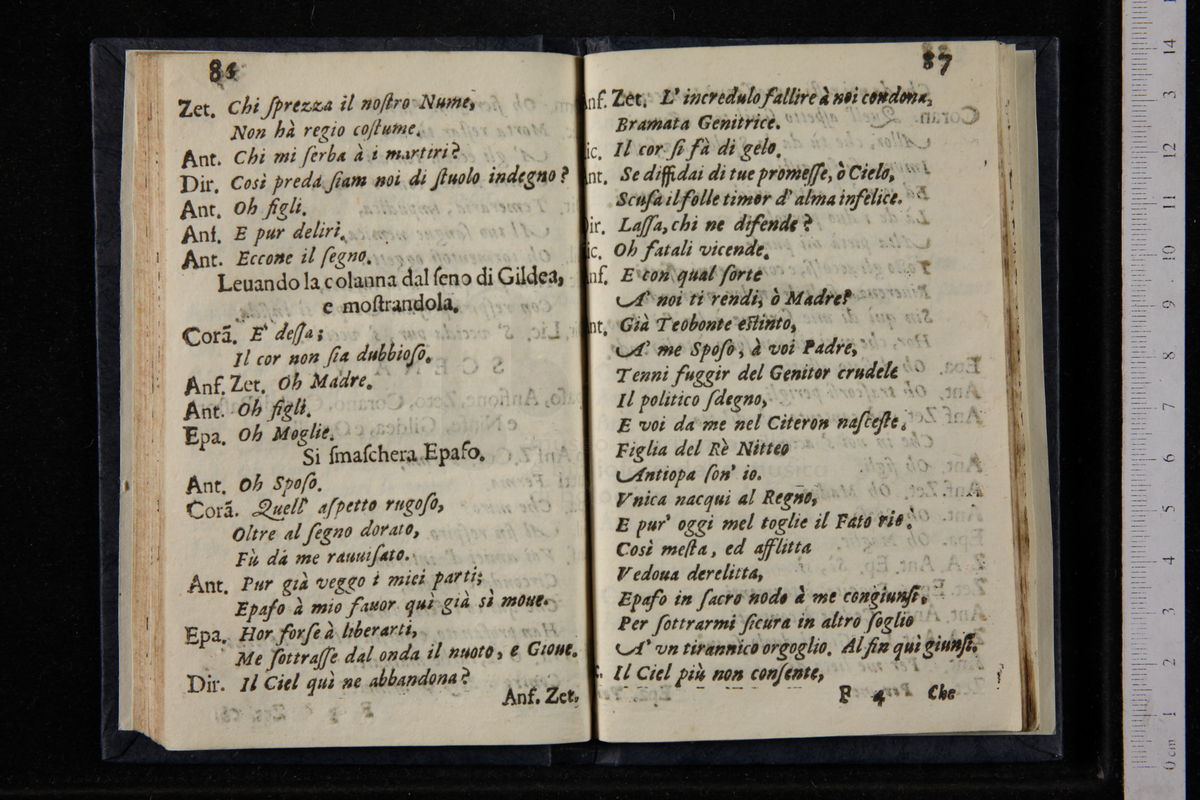 84
Zet. Chi ſprezza il noſtro Nume,
Non hà regio coſtume.
Ant. Chi mi ſerba à i martiri?
Dir. Così preda ſiam noi di ſtuolo indegno?
Ant. Oh figli.
Anf. E pur deliri.
Ant. Eccone il ſegno.
Leuando la colanna dal ſeno di Gildea,
e moſtrandola.
Corã. E' deſſa;
Il cor non ſia dubbioſo.
Anf. Zet. Oh Madre.
Ant. Oh figli.
Epa. Oh Moglie.
Si ſmaſchera Epafo.
Ant. Oh Spoſo.
Corã. Quell' aſpetto rugoſo,
Oltre al ſegno dorato,
Fù da me rauuiſato.
Ant. Pur già veggo i miei parti;
Epafo à mio fauor quì già sì moue.
Epa. Hor forſe à liberarti,
Me ſottraſſe dal onda il nuoto, e Gioue.
Dir. Il Ciel quì ne abbandona?
Anf. Zet.
87
Anf. Zet. L' incredulo fallire à noi condona,
Bramata Genitrice.
ic. Il cor ſi fà di gelo.
nt. Se diffidai di tue promeſſe, ò Cielo,
Scuſa il folle timor d' alma infelice.
Dir. Laſſa, chi ne difende?
ic. Oh fatali vicende.
nf. E con qual ſorte
A' noi ti rendi, ò Madre?
nt. Già Teobonte eſtinto,
A' me Spoſo, à voi Padre,
Tenni fuggir del Genitor crudele
Il politico ſdegno,
E voi da me nel Citeron naſceſte.
Figlia del Rè Nitteo
Antiopa ſon' io.
Vnica nacqui al Regno,
E pur' oggi mel toglie il Fato rio.
Così meſta, ed afflitta
Vedoua derelitta,
Epafo in ſacro nodo à me congiunſi,
Per ſottrarmi ſicura in altro ſoglio
A' vn tirannico orgoglio. Al fin quì giunſi.
Il Ciel più non conſente,
F 4 Che